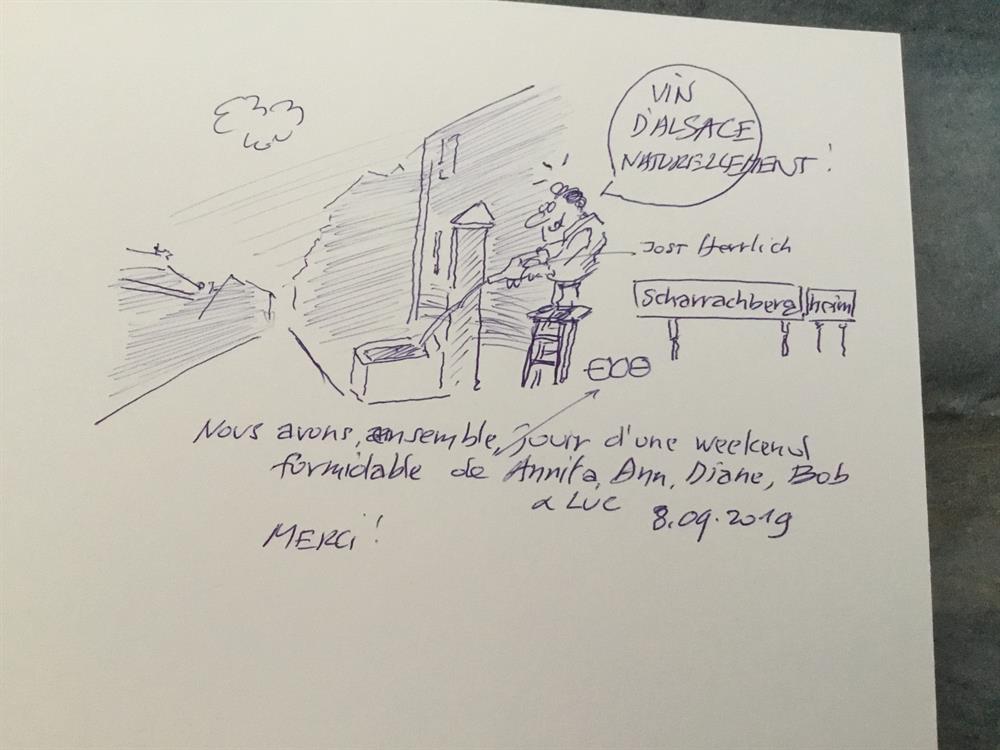 VIN
D'ALSACE
NATURELLEMENT!
Jost Herrlich
Scharrachberg heim
Nous avons, ensemble, jouir d'une weekend
formidable de Annita, Ann, Diane, Bob
& Luc
8.09.2019
MERCI!